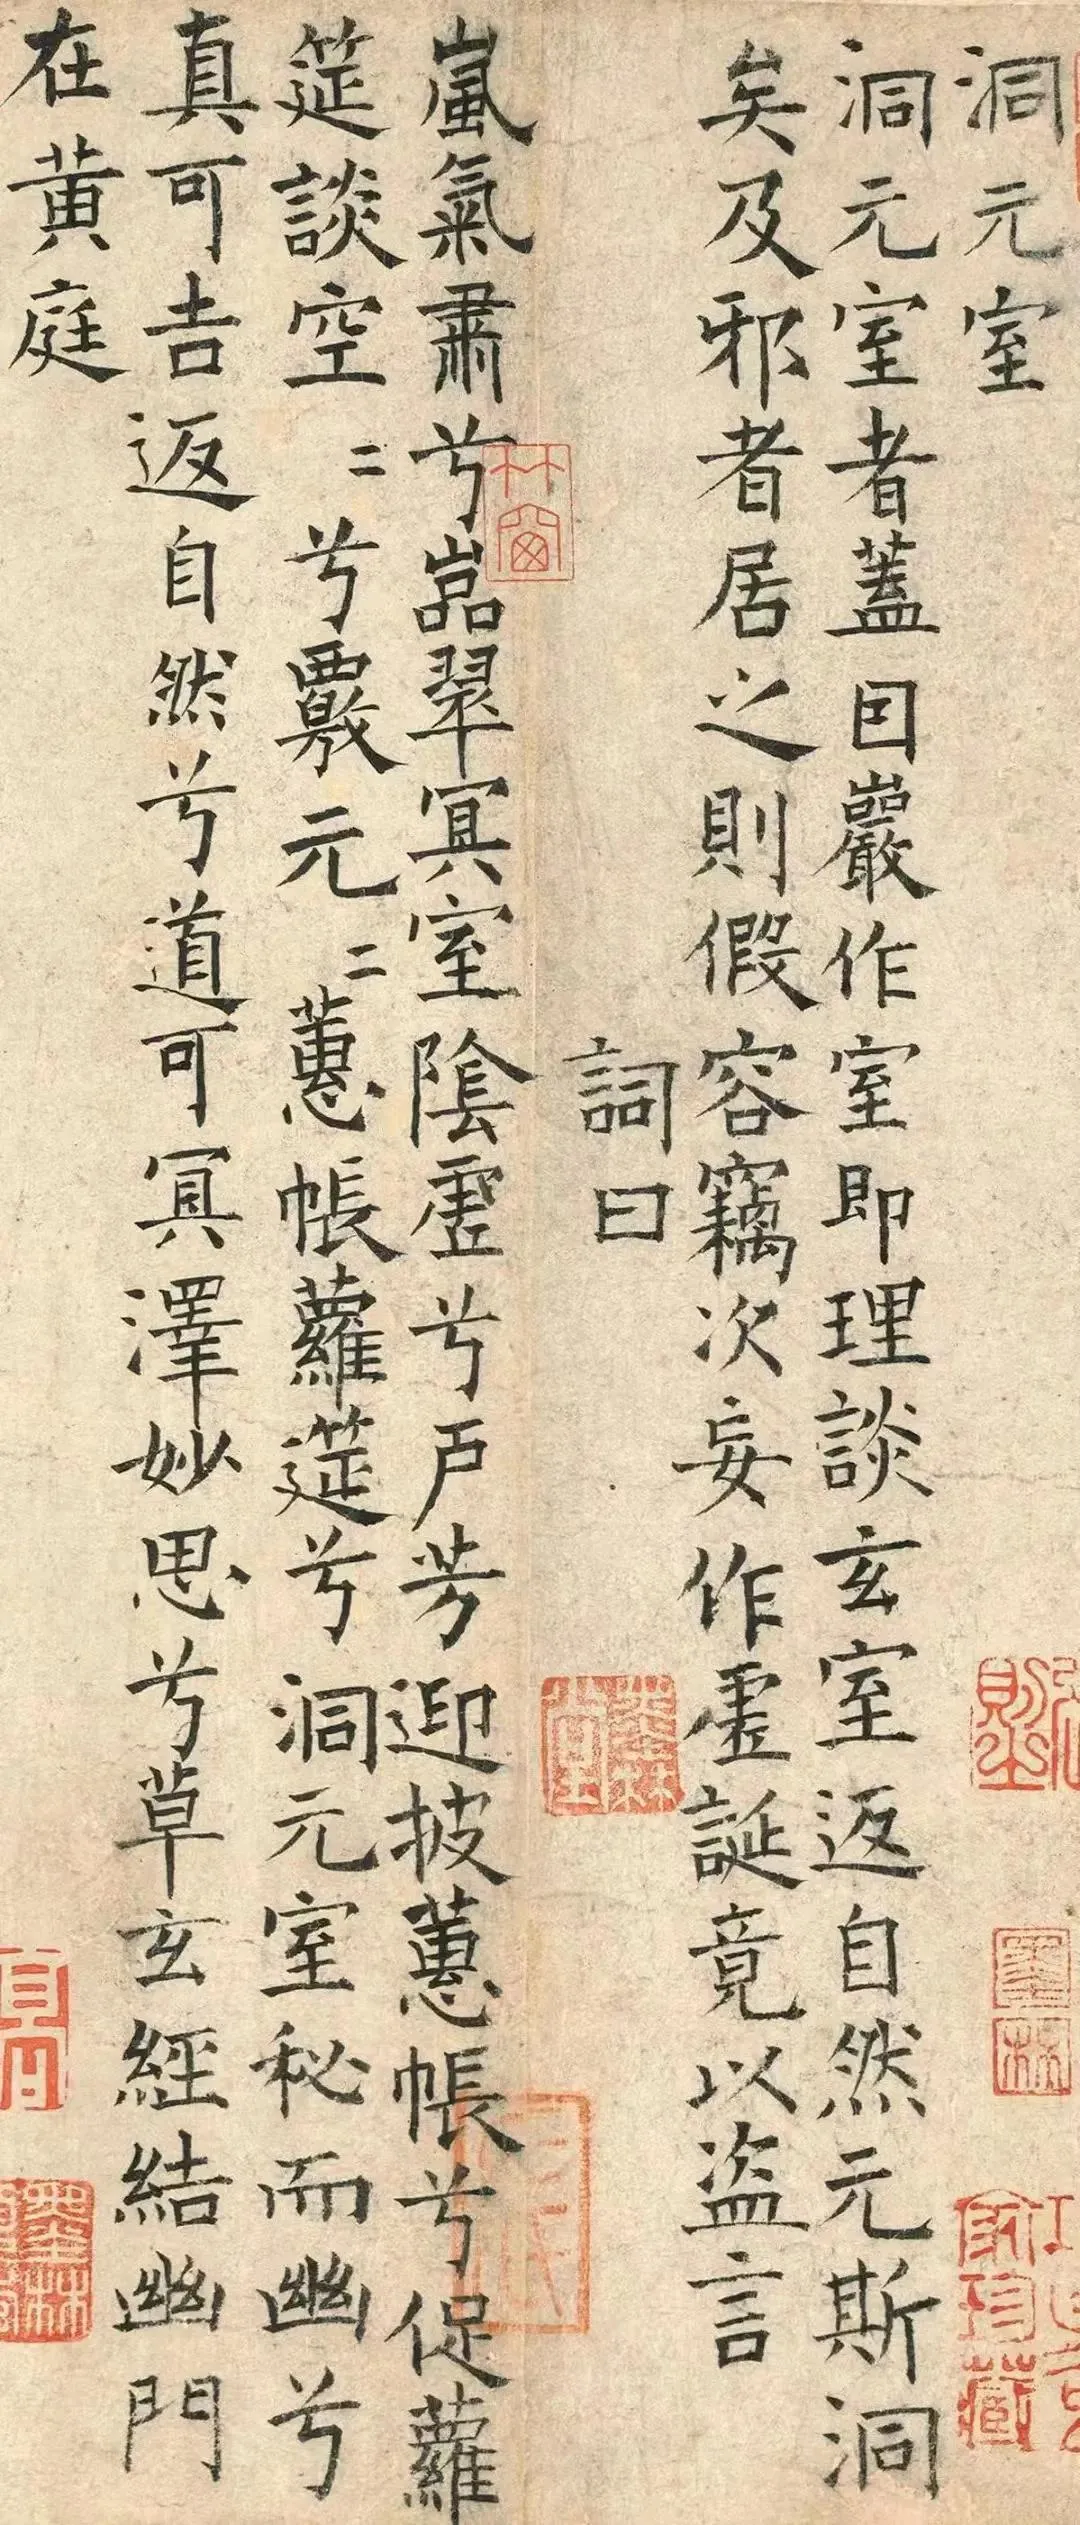 洞元室
洞元室者蓋囙巖作室即理談玄室返自然元斯洞
矣及邪者居之則假容竊次妄作虛誕竟以盜言
詞曰
嵐氣肅兮嵓翠冥室陰虛兮戶芳迎披蕙帳兮促蘿
筵談空〻兮覈元〻蕙帳蘿筵兮洞元室秘而幽兮
真可吉返自然兮道可冥澤妙思兮草玄經結幽門
在黃庭
竹窗
墨林
家珍藏